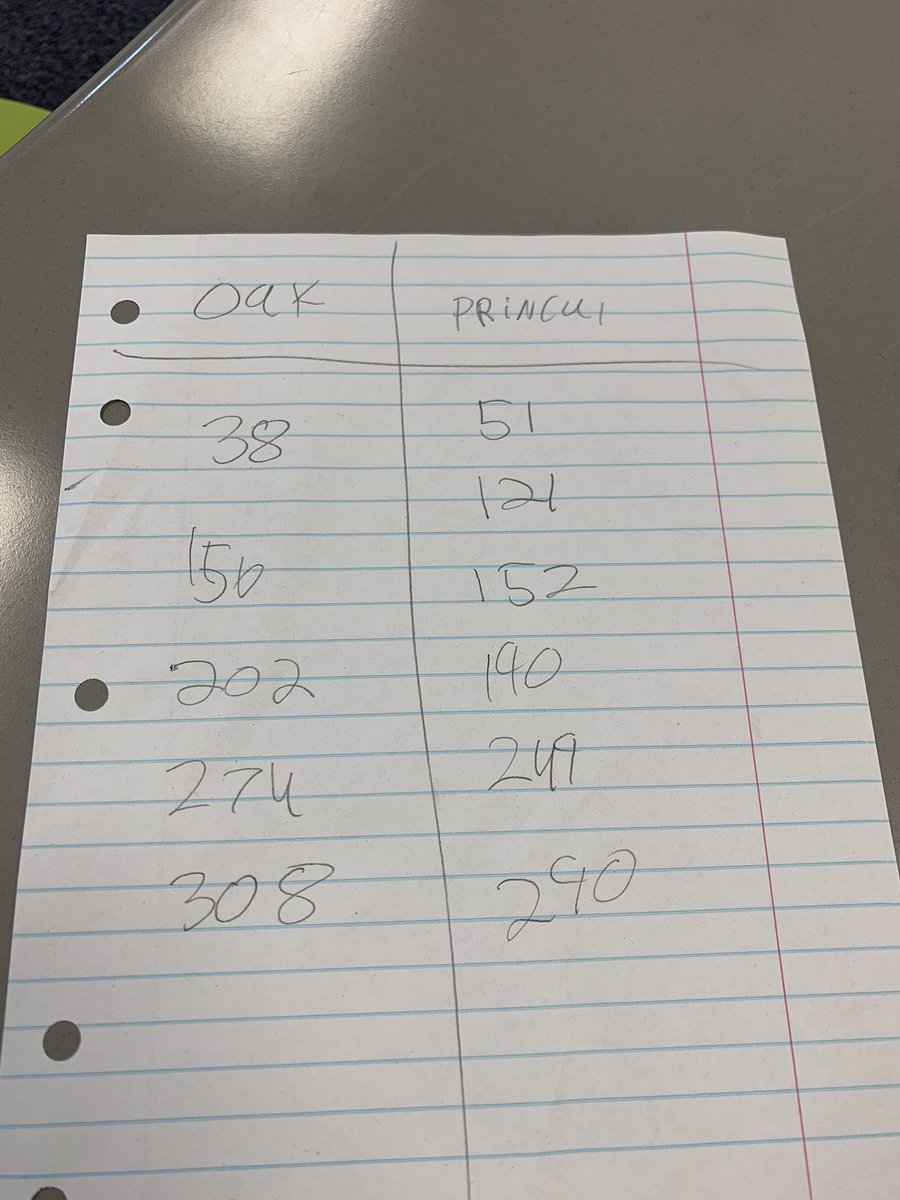 Oak PRiNCUI
38 51
121
156 152
202 190
274 249
308 290